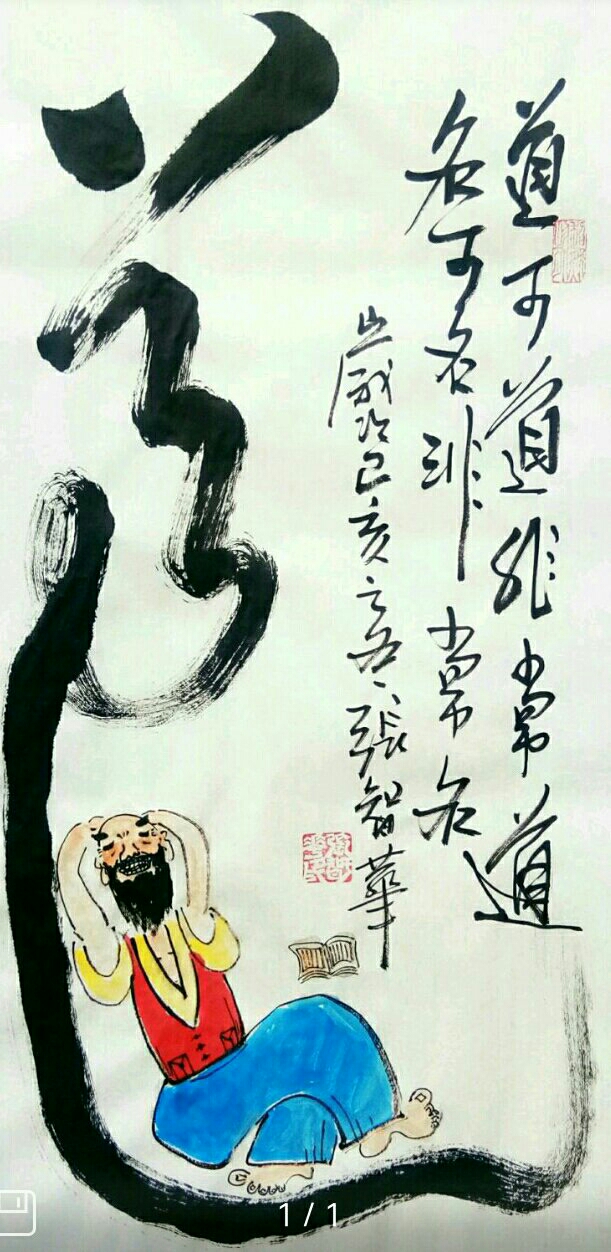 道可道非常道
名可名非常名
歲次己亥之冬張智華
道
1 / 1